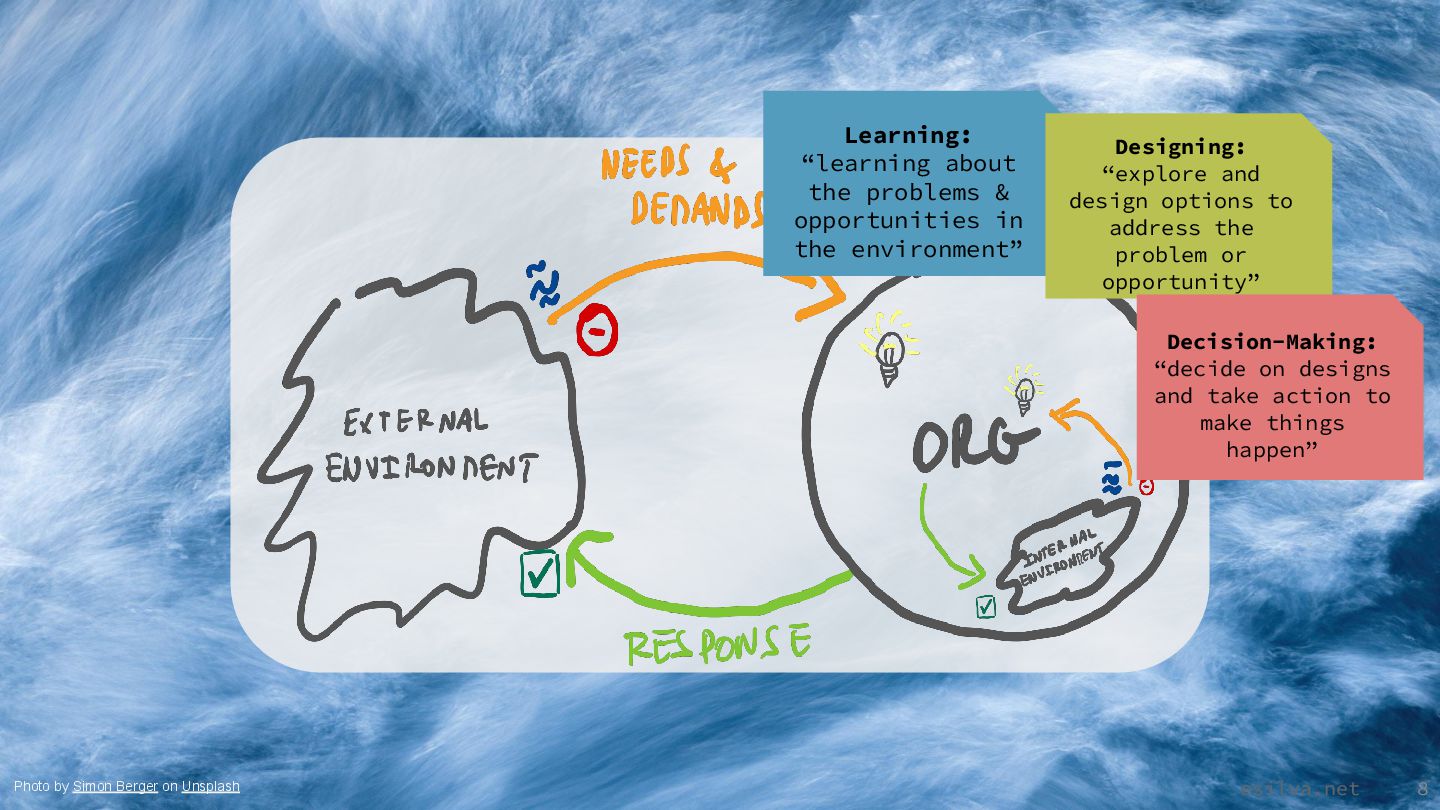 NEEDS &
DEMANDS
Learning:
“learning about
the problems &
opportunities in
the environment”
Designing:
“explore and
design options to
address the
problem or
opportunity”
Decision-Making:
“decide on designs
and take action to
make things
happen”
EXTERNAL
ENVIRONMENT
ORG
INTERNAL
ENVIRONMENT
RESPONSE
Photo by Simon Berger on Unsplash
esilva.net
8